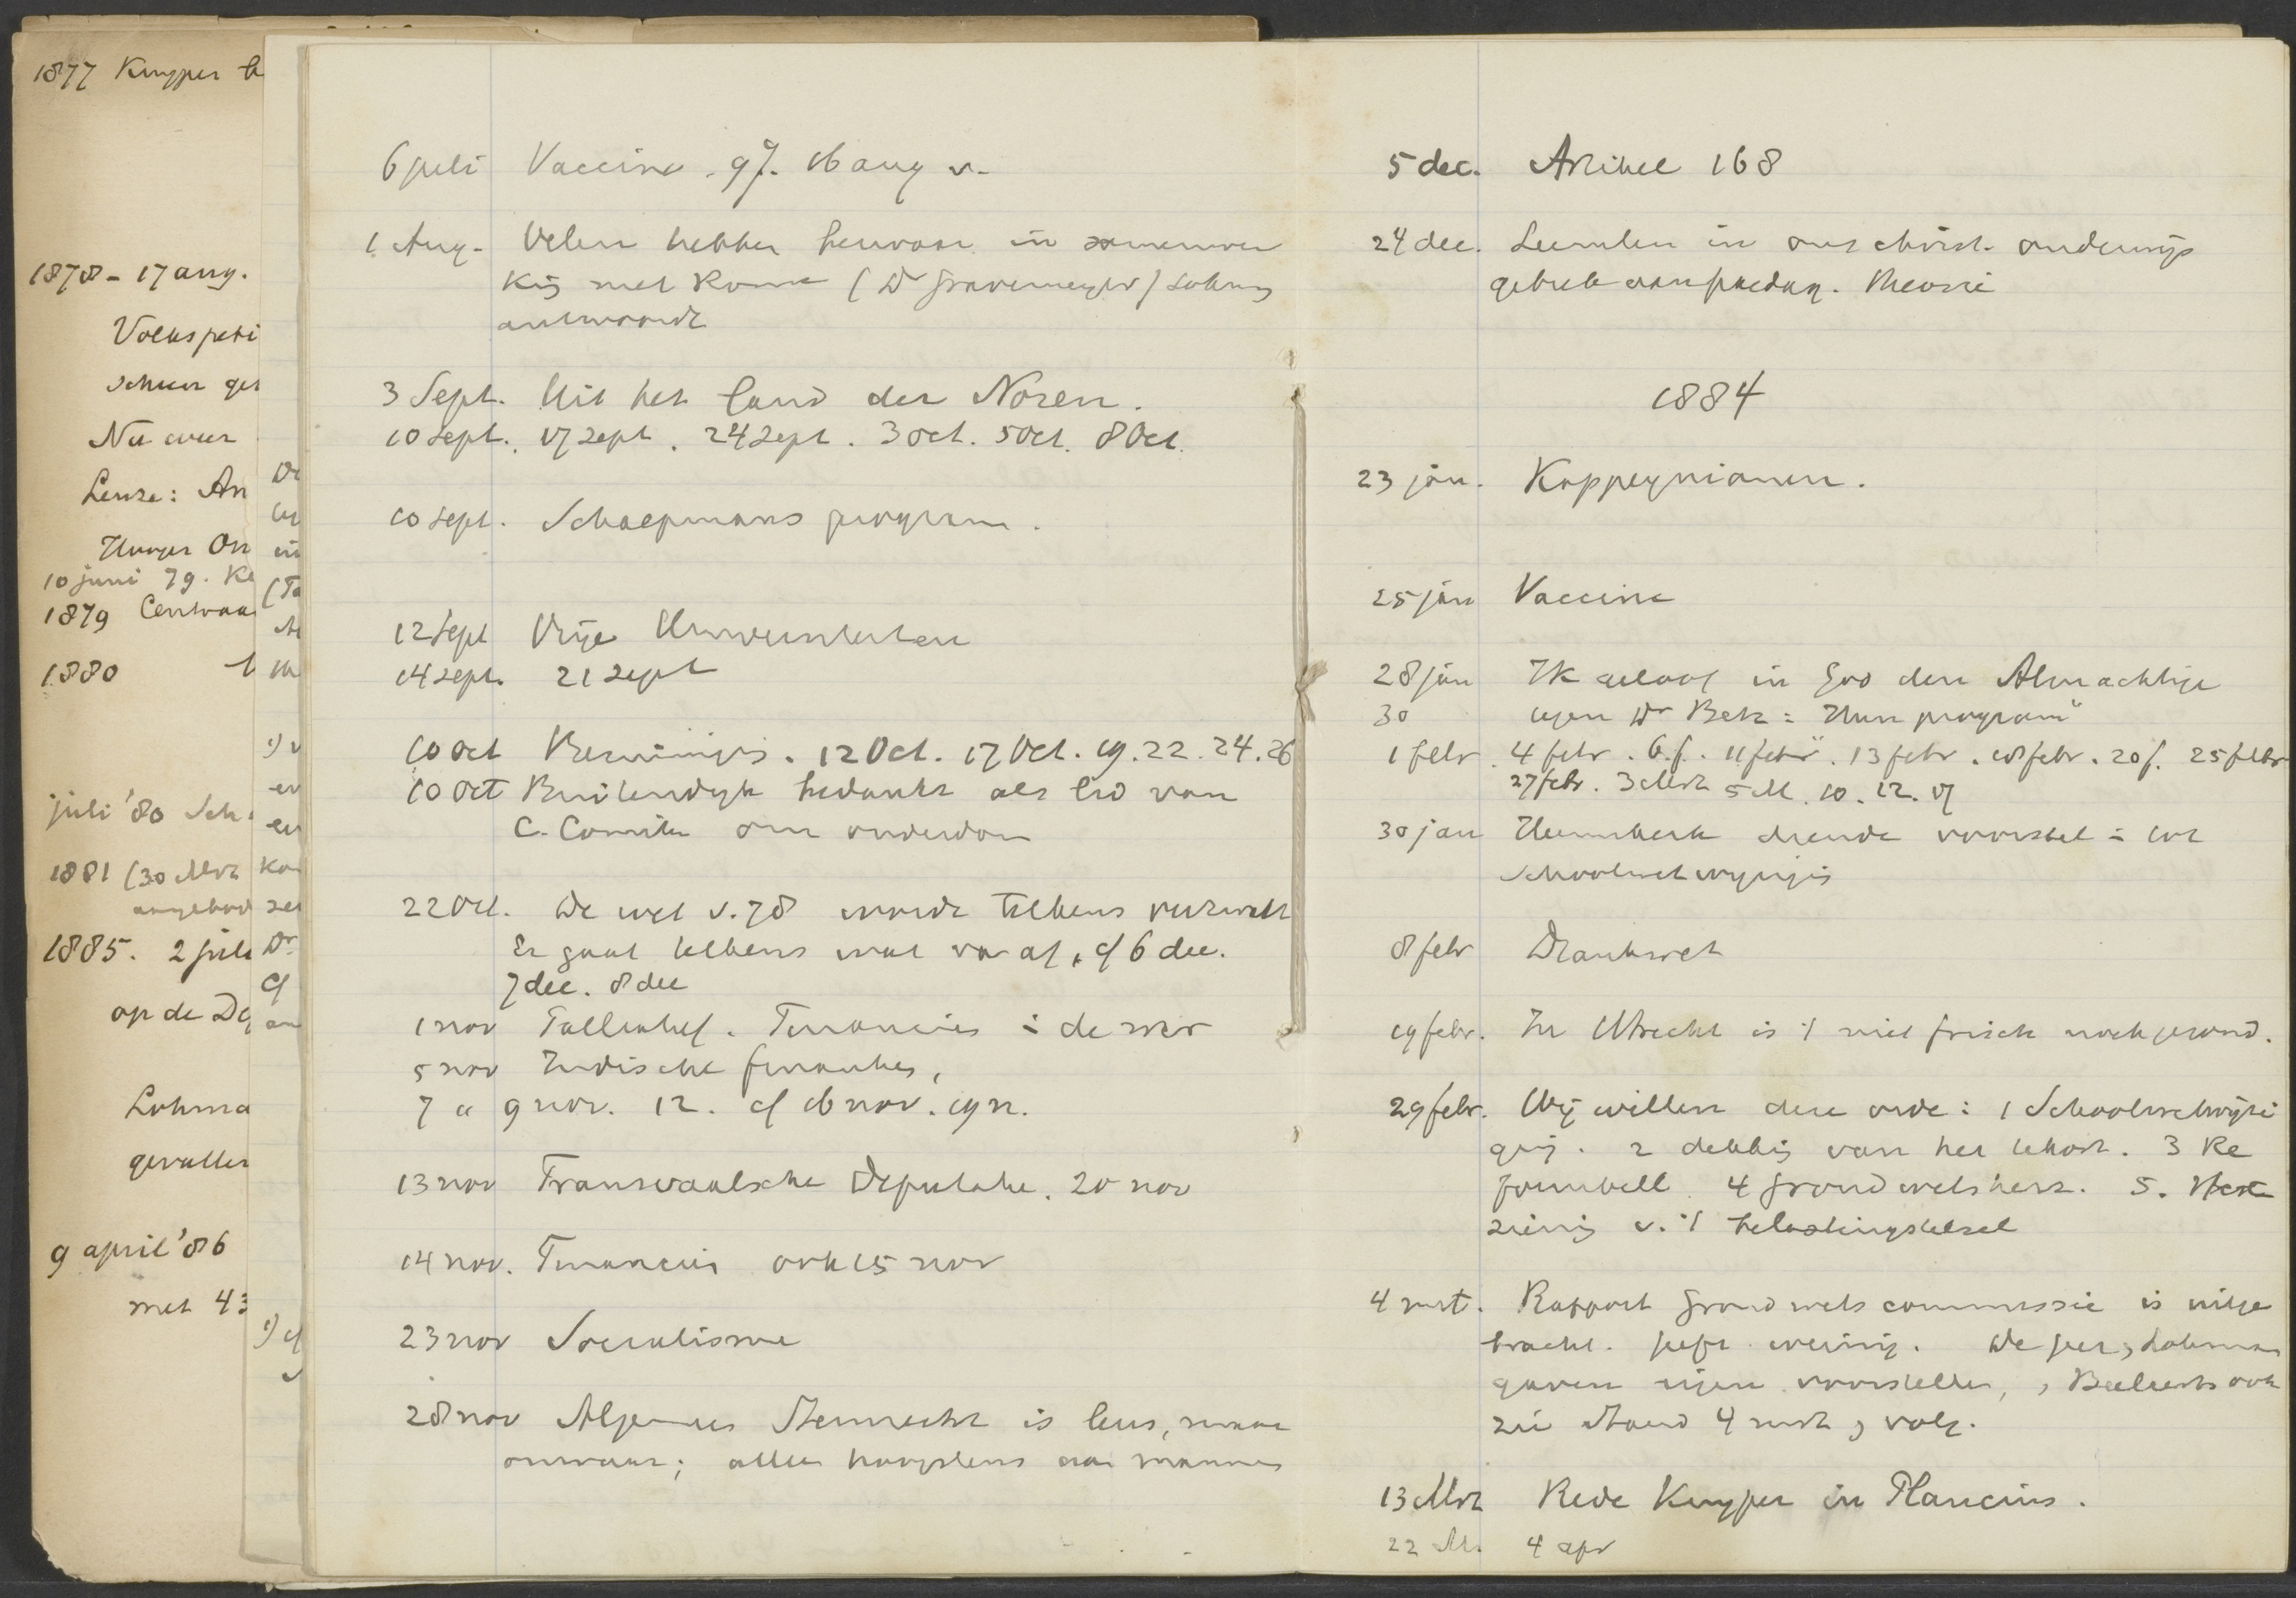 1877 Kuyper
1878 - 17 aug.
Volkspeti
Schun ges
Nu weer
Leuze: An
On
10 juni 79. Ke
1879 Centraa
1880
juli '80 Sch
1881 (30 Mrt
aangebod
1885. 2 juli
op de De
Lohma
gevallen
9 april '86
met 43
Dr
in
(Ta
en
Dr
cf
6 juli Vaccine. 9 J. 16 aug v.
1 Aug. Velen hebben bezwaar in samenwer
king met Rome (Dr Gravemeyer) Lohman
antwoordt
3 Sept. Uit het land der Noren.
10 Sept. 17 Sept. 24 Sept. 3 Oct. 5 Oct. 8 Oct.
10 Sept. Schaepmans program.
12 Sept Vrije Universiteiten
14 Sept. 21 Sept
10 Oct Bezuiniging. 12 Oct. 17 Oct. 19. 22. 24. 26
10 Oct Buitendijk bedankt als lid van
C. Comite om ouderdom
22 Oct. De wet v. 78 wordt telkens verzwakt
Er gaat telkens wat van af, cf 6 dec.
7 dec. 8 dec
1 nov Tollenhof. Financies: de
5 nov Indische financies,
7 a 9 nov. 12. cf 16 nov. 19 n.
13 nov Transvaalsche Deputatie. 20 nov
14 nov. Financien ook 15 nov
23 nov Socialisme
28 nov Algemeen Stemrecht is leus, maar
onwaar; allen hoogstens aan mannen
5 dec. Artikel 168
24 dec. Leemten in ons christ. onderwijs
gebrek aan paedag. theorie
1884
23 jan. Kappeynianen.
25 jan Vaccine
28 jan Ik geloof in God den Almachtige
30 tegen Dr Betz: "Hun program"
1 febr. 4 febr. 6 f. 11 febr. 13 febr. 18 febr. 20 f. 25 febr
27 febr. 3 Mrt 5 M. 10. 12. 17
30 jan Heemskerk diende voorstel in tot
Schoolwetwijziging
8 febr Drankwet
19 febr. In Utrecht is 't niet frisch noch gezond.
29 febr. Wij willen deze orde: 1 Schoolwetwijzi
ging. 2 dekking van het tekort. 3 Re
formbill. 4 Grondwetsherz. 5. Her
ziening v. 't belastingstelsel
4 mrt. Rapport Grondwetscommissie is uitge
bracht. geeft weinig. De Geer, Lohman
gaven eigen voorstellen, Beelaerts ook
zie Stand 4 mrt, volg.
13 Mrt Rede Kuyper in Plancius.
22 M. 4 apr